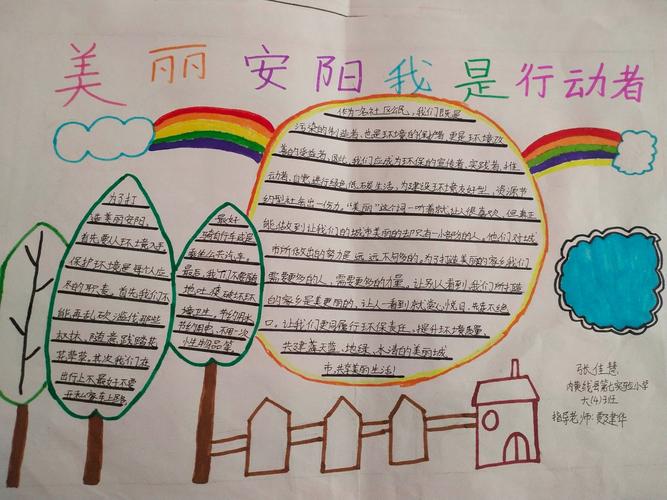 美丽安阳我是行动者
作为一名社区公民，我们既是
污染的制造者，也是环境的保护者 更是环境改
善的受益者，因此，我们应成为环保的宣传者，实践者，推
动者，自觉进行绿色、低碳生活，为建设环境友好型，资源节
约型社会出一份力。“美丽”这个词一听着就让人很喜欢，但真正
能做到让我们的城市美丽的却只有一小部分人，他们对城
市所做出的努力是远远不够多的，为了打造美丽的家乡我们
需要更多的人，需要更多的力量，让别人看到我们所打造
的家乡是美更丽的，让人一看到就赏心悦目，共赤不绝
口。让我们更自履行环保责任，提升环境质量
共建蓝天蓝，地绿，水清的美丽城
市，共享美丽生活！
为了打
造美丽安阳，
首先要从环境入手
保护环境是每个人应
尽的职责，首先我们不
能再乱砍滥伐那些
树林，随意践踏花
花草草，其次我们在
出行上不最好不要
开私家车上路，
最好
骑自行车或是
乘坐公共汽车，
最后，我们不要随
地吐痰破坏环
境卫生，节约用水
节约用电，不用一次
性物品筷
张佳慧
内黄线县第七实验小学
六(4)3班
指导老师：建华